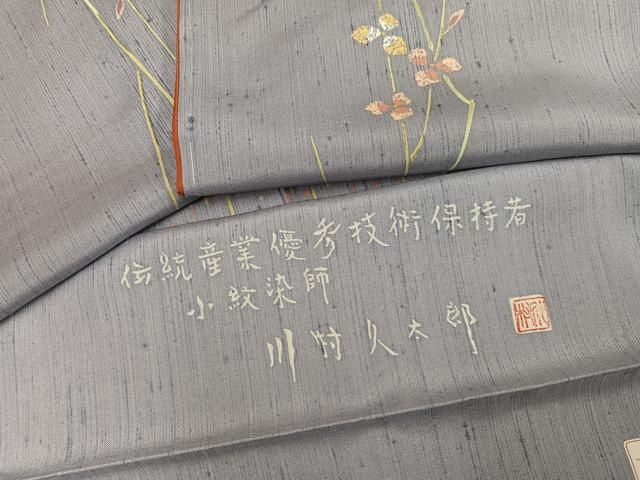 伝統産業優秀技術保持者
小紋染師
川村久太郎